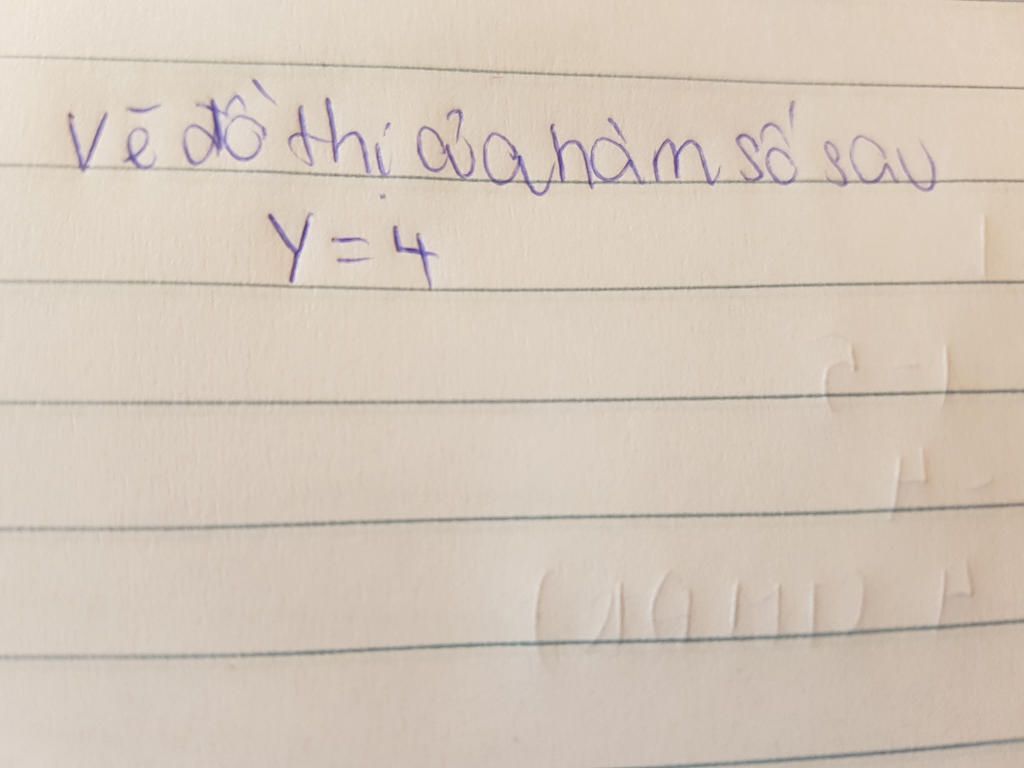 Vẽ đồ thị của hàm số sau
y = 4